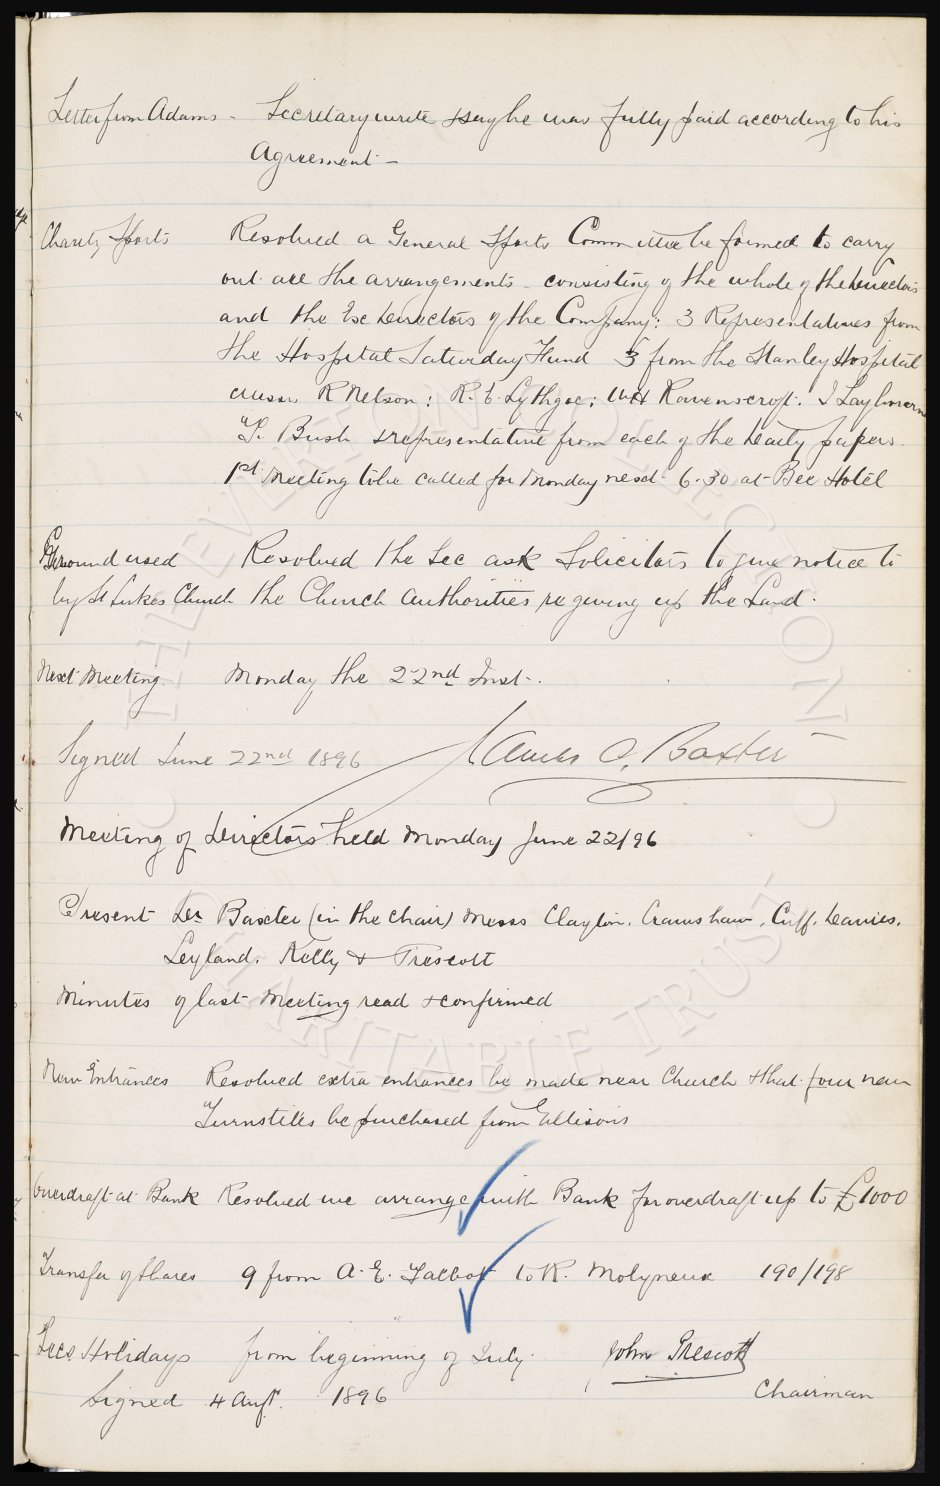 Letter from Adams - Secretary write & say he was fully paid according to his
Agreement -
Charity Sports Resolved a General Sports Committee be formed to carry
out all the arrangements - consisting of the whole of the Directors
and the Exe Directors of the Company: 3 Representatives from
the Hospital Saturday Fund 3 from the Stanley Hospital
Messrs R Nelson: R. E. Lythgoe: WH Ravenscroft. J Laybourne
T. Bush & representative from each of the Daily papers.
1st Meeting to be called for Monday next 6.30 at Bee Hotel
Ground used Resolved the Sec ask Solicitors to give notice to
by St Lukes Church the Church Authorities re giving up the Land.
Next Meeting. Monday the 22nd Inst.
Signed June 22nd 1896 James C. Baxter
Meeting of Directors held Monday June 22/96
Present Dr Baxter (in the chair) Messrs Clayton, Crawshaw, Cuff, Davies,
Leyland, Kelly & Prescott
Minutes of last Meeting read & confirmed
New Entrances Resolved extra entrances be made near Church & that four new
Turnstiles be purchased from Ellisons
Overdraft at Bank Resolved we arrange with Bank for overdraft up to £1000
Transfer of Shares 9 from A. E. Talbot to R. Molyneux 190/198
Secs Holidays from beginning of July. John Prescott
Signed 4 Augt. 1896 Chairman
THE EVERTON COLLECTION
CHARITABLE TRUST